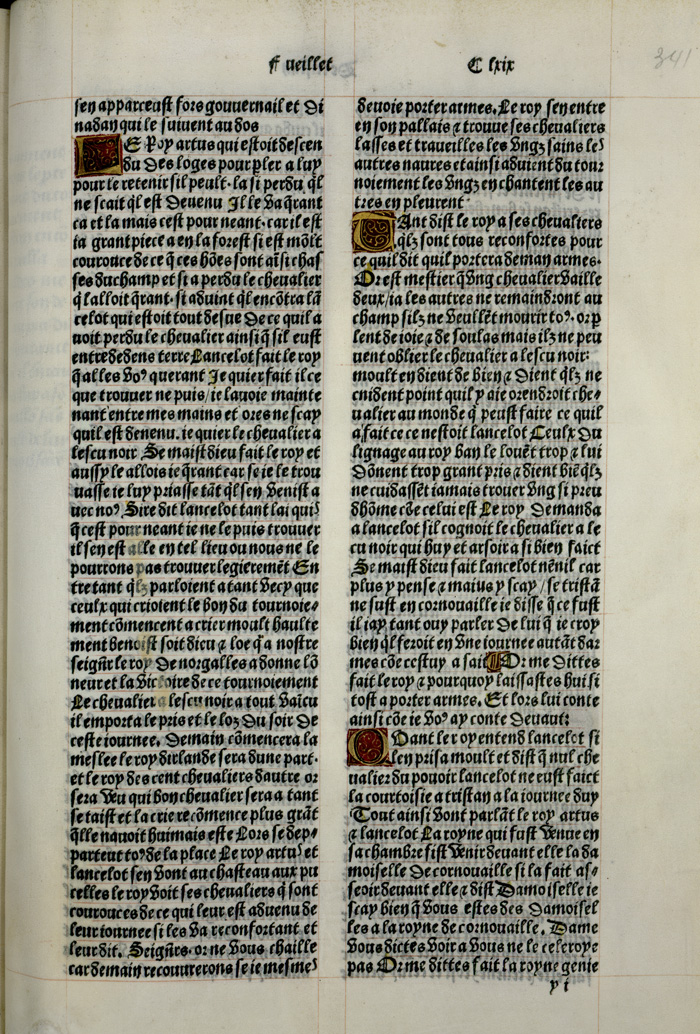 fueillet C lxix
341
sen apparceust fors gouuernail et di
nadan qui le suiuent au dos
LE Roy artus qui estoit descen
du des loges pour p̲ler a luy
pour le retenir sil peult. la si perdu q̄l
ne scait q̄l est deuenu Il le va q̄rant
ca et la mais cest pour neant. car il est
ia grant piece a en la forest si est mōlt
courouce de ce q̄ ces hōes sont aīsi chas
ses du champ et si a perdu le chevalier
q̄ l alloit q̄rant. si aduint q̄l encōtra lā
celot qui estoit tout desue de ce quil a
uoit perdu le cheualier ainsi q̄ sil eust
entre dedens terre Lancelot fait le roy
q̄ alles voꝰ querant Je quier fait il ce
que trouuer ne puis/ ie lauoie mainte
nant entre mes mains et ores ne scay
quil est deuenu. ie quier le cheualier a
lescu noir Se maist dieu fait le roy et
aussy le allois ie q̄rant car se ie le trou
uasse ie luy priasse tāt q̄l sen venist a
uec noꝰ. Sire dit lancelot tant lai quiˢ
q̄ cest pour neant ie ne le puis trouuer
il sen est alle en tel lieu ou nous ne le
pourrons pas trouuer legieremēt En
tre tant q̄lz parloient a tant vecy que
ceulx qui crioient le bon du tournoie⸗
ment cōmencent a crier moult haulte
ment benoist soit dieu ⁊ loe q̄ a nostre
seigñr le roy de norgalles a donne lō
neur et la victoire de ce tournoiement
Le cheualier a lescu noir a tout vaīcu
il emporta le pris et le loz du soir de
ceste iournee. Demain cōmencera la
meslee le roy dirlande sera dune part.
et le roy des cent cheualiers dautre or
sera veu qui bon cheualier sera a tant
se taist et la crie recōmence plus grāt
q̄lle nauoit huimais este Lors se dep⸗
partent toꝰ de la place Le roy artuˢ et
lancelot sen vont au chasteau aux pu
celles le roy voit ses cheualiers q̄ sont
courouces de ce qui leur est aduenu de
leur iournee si les va reconfortant et
leur dit. Seigñrs. or ne vous chaille
car demain recouurerons se ie mesmeˢ
deuoie porter armes. Le roy sen entre
en son pallais ⁊ trouue ses cheualiers
lasses et traueilles les vngz sains leˢ
autres naures et ainsi aduient du tour
noiement les vngz en chantent les au
tres en pleurent
TAnt dist le roy a ses cheualiers
q̄lz sont tous reconfortes pour
ce quil dit quil portera demain armes.
Or est mestier q̄ vng cheualier vaille
deux/ ia les autres ne remaindront au
champ silz ne veullēt mourir toꝰ. or p̲
lent de ioie ⁊ de soulas mais ilz ne peu
uent oblier le cheualier a lescu noir:
moult en dient de bien ⁊ dient q̄lz ne
cuident point quil y aie orendroit che⸗
ualier au monde q̄ peust faire ce quil
a fait ce ce nestoit lancelot Ceulx du
lignage au roy ban le louēt trop ⁊ lui
dōnent trop grant pris ⁊ dient biē q̄lz
ne cuidassēt iamais trouuer vng si preu
dhōme cōe celui est Le roy demanda
a lancelot sil cognoit le cheualier a le
cu noir qui huy et arsoir a si bien faict
Se maist dieu fait lancelot nēnil car
plus y pense ⁊ mains y scay/ se tristā
ne fust en cornouaille ie disse q̄ ce fust
il iay tant ouy parler de lui q̄ ie croy
bien q̄l feroit en vne iournee autāt dar
mes cōe cestuy a fait Or me dittes
fait le roy ⁊ pourquoy laissastes hui si
tost a porter armes. Et lors lui conte
ainsi cōe ie voꝰ ay conte deuant:
QVant le roy entend lancelot si
len prisa moult et dist q̄ nul che
ualier du pouoir lancelot ne eust faict
la courtoisie a tristan a la iournee duy
Tout ainsi vont parlāt le roy artus
⁊ lancelot La royne qui fust venue en
sa chambre fist venir deuant elle la da
moiselle de cornouaille si la fait as⸗
seoir deuant elle ⁊ dist Damoiselle ie
scay bien q̄ vous estes des damoisel
les a la royne de cornouaille. Dame
vous dictes voir a vous ne le celeroye
pas Or me dittes fait la royne genie
y i